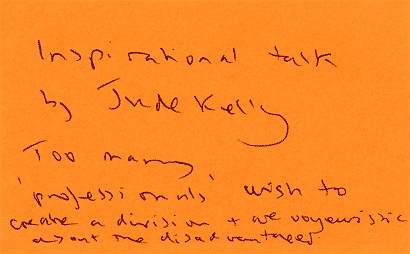 Inspirational talk
by Jude Kelly
Too many
'professionals' wish to
create a division + are voyeurissic
about the disadvantaged.